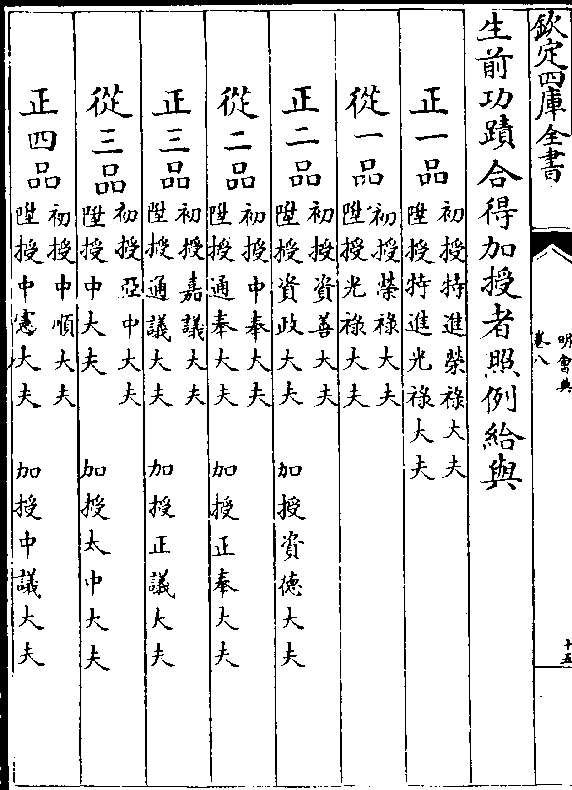 欽定四庫全書
明會典
卷八
十五
生前功蹟合得加授者照例給與
正一品
初授特進榮祿大夫
陞授特進光祿大夫
從一品
初授榮祿大夫
陞授光祿大夫
正二品
初授資善大夫
陞授資政大夫
加授資德大夫
從二品
初授中奉大夫
陞授通奉大夫
加授正奉大夫
正三品
初授嘉議大夫
陞授通議大夫
加授正議大夫
從三品
初授亞中大夫
陞授中大夫
加授太中大夫
正四品
初授中順大夫
陞授中憲大夫
加授中議大夫